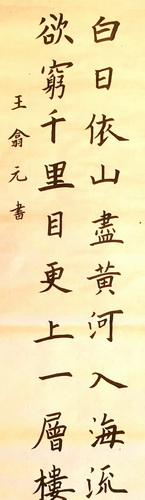 白日依山盡黃河入海流
欲窮千里目更上一層樓
王翕元書